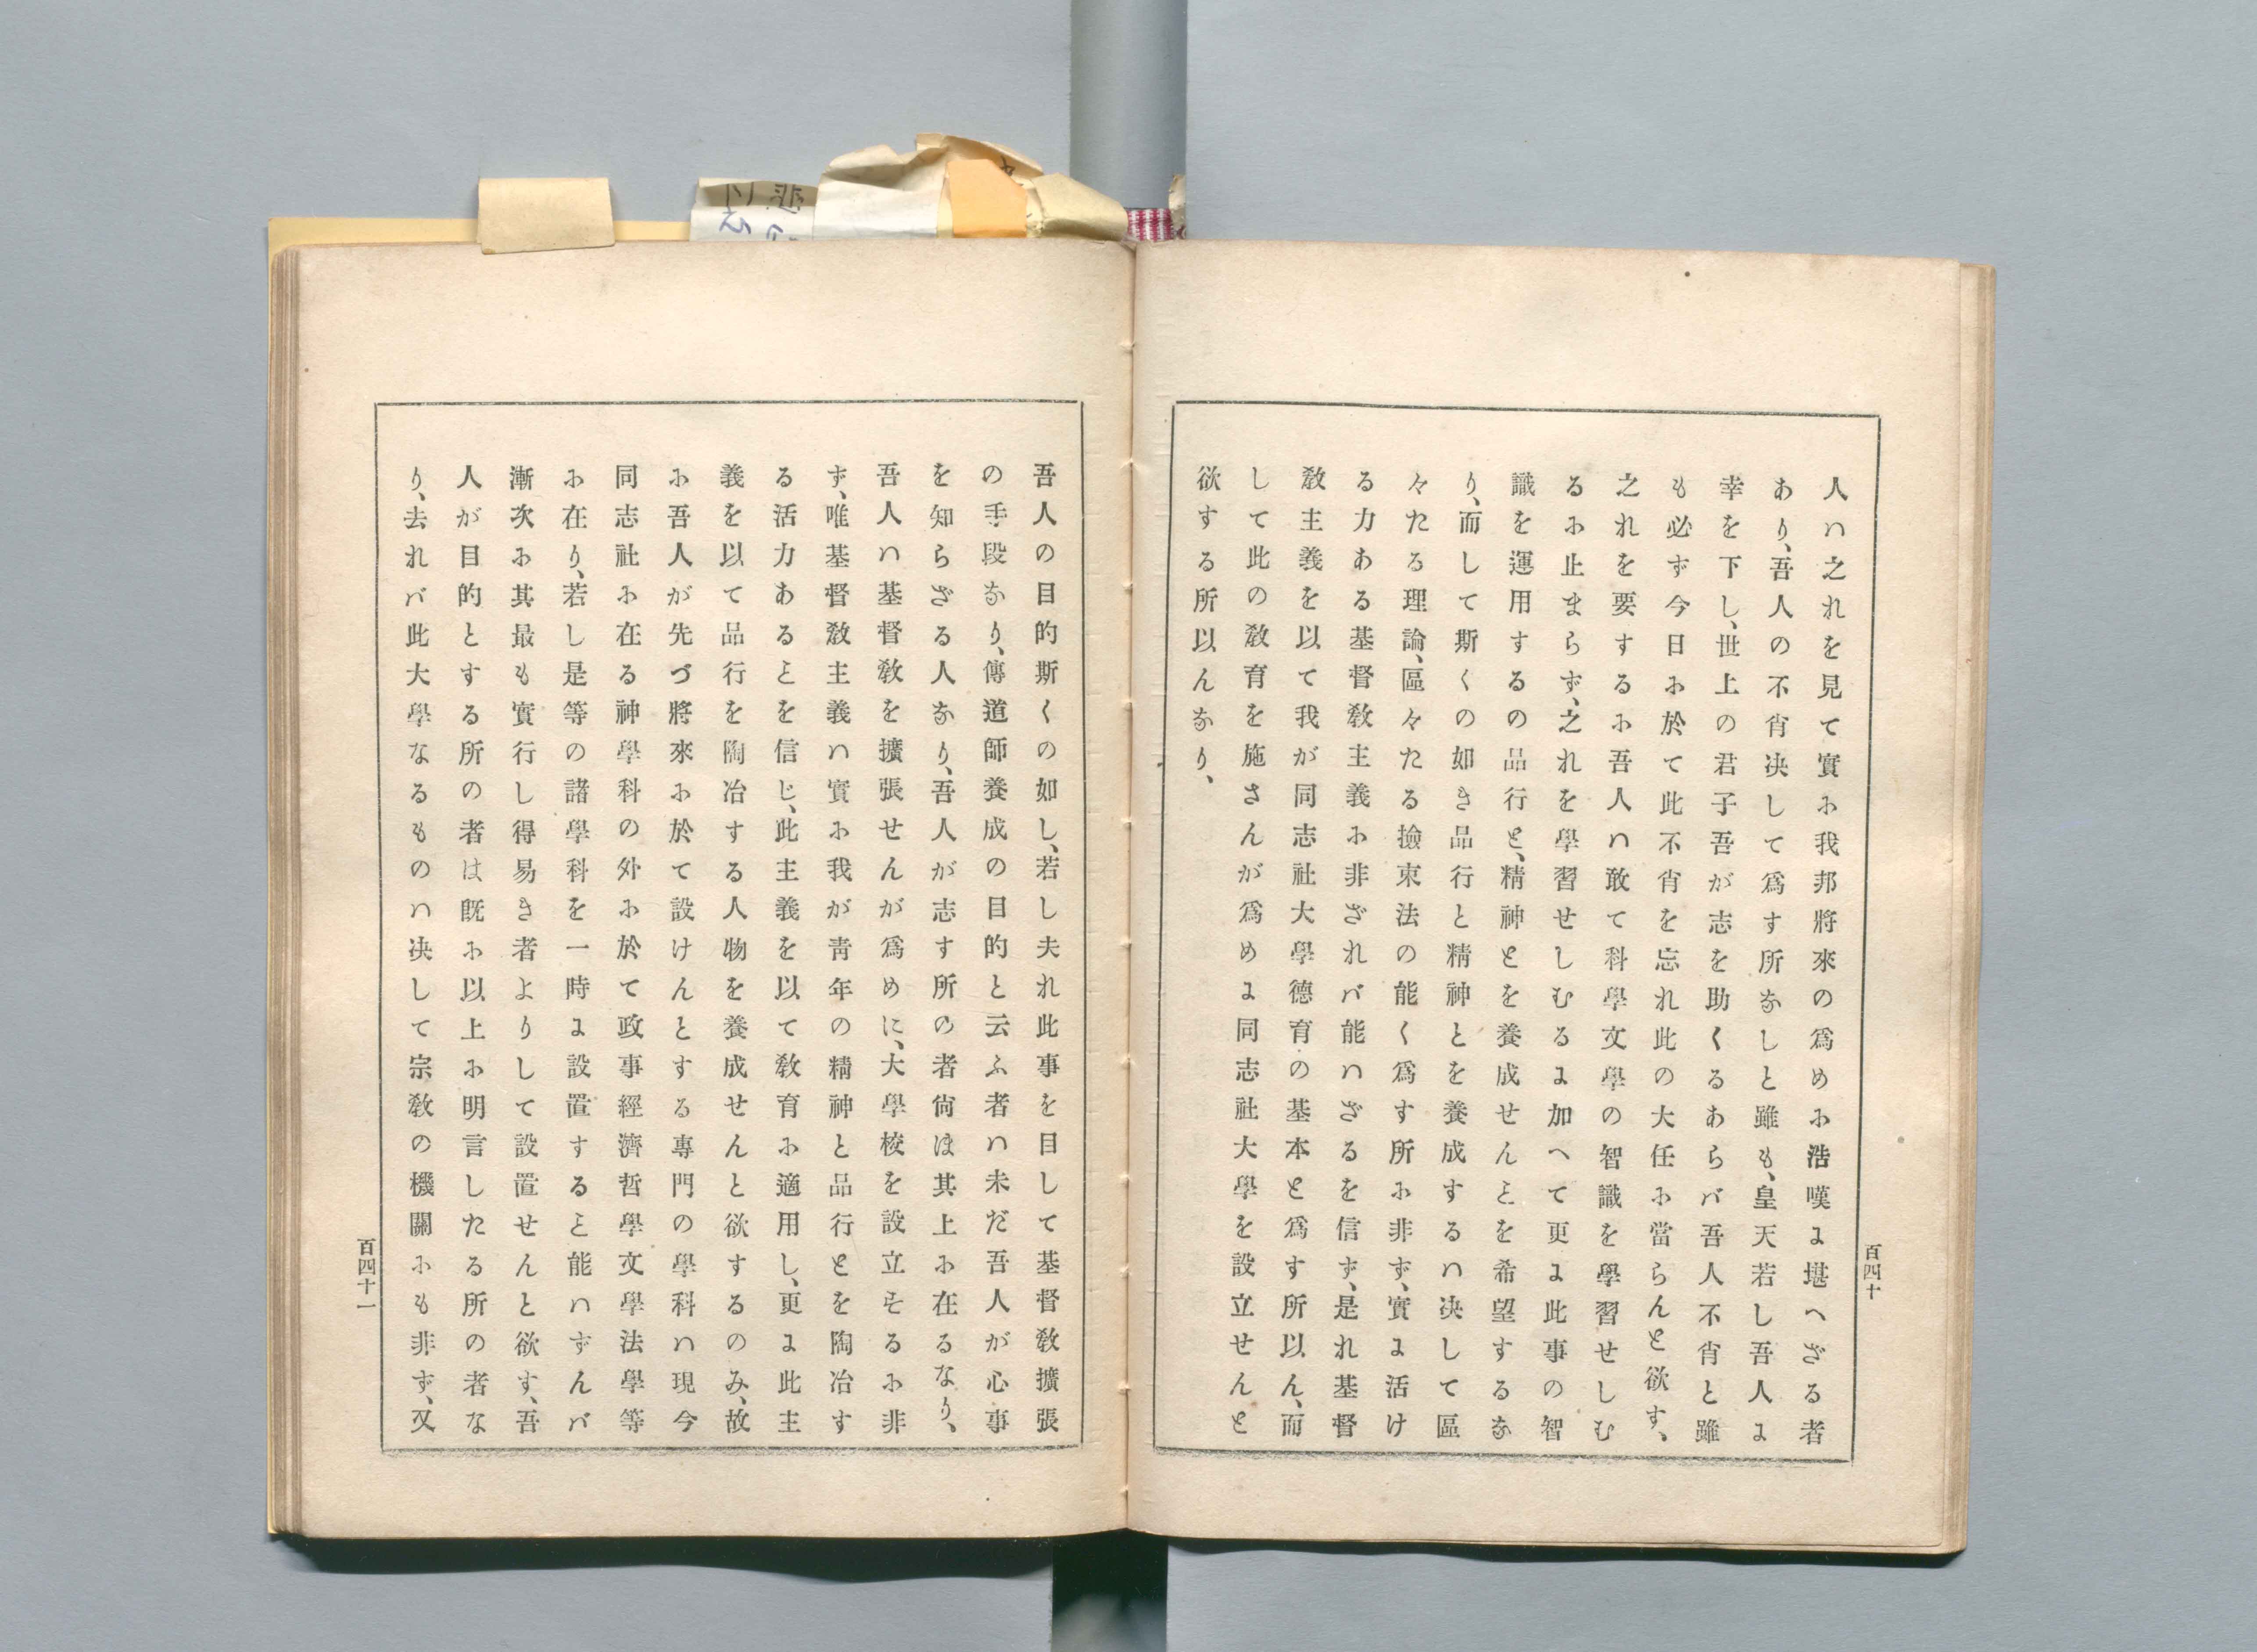 百四十
人ハ之れを見て實に我邦將來の爲めに浩嘆に堪へざる者
あり、吾人の不肖决して爲す所なしと雖も、皇天若し吾人に
幸を下し、世上の君子吾が志を助くるあらバ吾人不肖と雖
も必ず今日に於て此不肖を忘れ此の大任に當らんと欲す、
之れを要するに吾人ハ敢て科學文學の智識を學習せしむ
るに止まらず、之れを學習せしむるに加へて更に此事の智
識を運用するの品行と、精神とを養成せんことを希望するな
り、而して斯くの如き品行と精神とを養成するハ决して區
々たる理論、區々たる撿束法の能く爲す所に非ず、實に活け
る力ある基督敎主義に非ざれバ能ハざるを信ず、是れ基督
敎主義を以て我が同志社大學德育の基本と爲す所以ん、而
して此の敎育を施さんが爲めに同志社大學を設立せんと
欲する所以んなり、
吾人の目的斯くの如し、若し夫れ此事を目して基督敎擴張
の手段なり、傳道師養成の目的と云ふ者ハ未だ吾人が心事
を知らざる人なり、吾人が志す所の者尙ほ其上に在るなり、
吾人ハ基督敎を擴張せんが爲めに、大學校を設立するに非
ず、唯基督敎主義ハ實に我が靑年の精神と品行とを陶冶す
る活力あることを信じ、此主義を以て敎育に適用し、更に此主
義を以て品行を陶冶する人物を養成せんと欲するのみ、故
に吾人が先づ將來に於て設けんとする專門の學科ハ現今
同志社に在る神學科の外に於て政事經濟哲學文學法學等
に在り、若し是等の諸學科を一時に設置すること能ハずんバ
漸次に其最も實行し得易き者よりして設置せんと欲す、吾
人が目的とする所の者は既に以上に明言したる所の者な
り、去れバ此大學なるものハ决して宗敎の機關にも非ず、又
百四十一